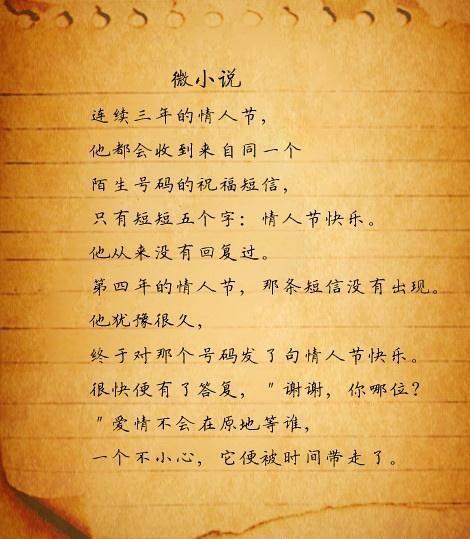 微小说
连续三年的情人节，
他都会收到来自同一个
陌生号码的祝福短信，
只有短短五个字：情人节快乐。
他从来没有回复过。
第四年的情人节，那条短信没有出现。
他犹豫很久，
终于对那个号码发了句情人节快乐。
很快便有了答复，"谢谢，你哪位？
"爱情不会在原地等谁，
一个不小心，它便被时间带走了。